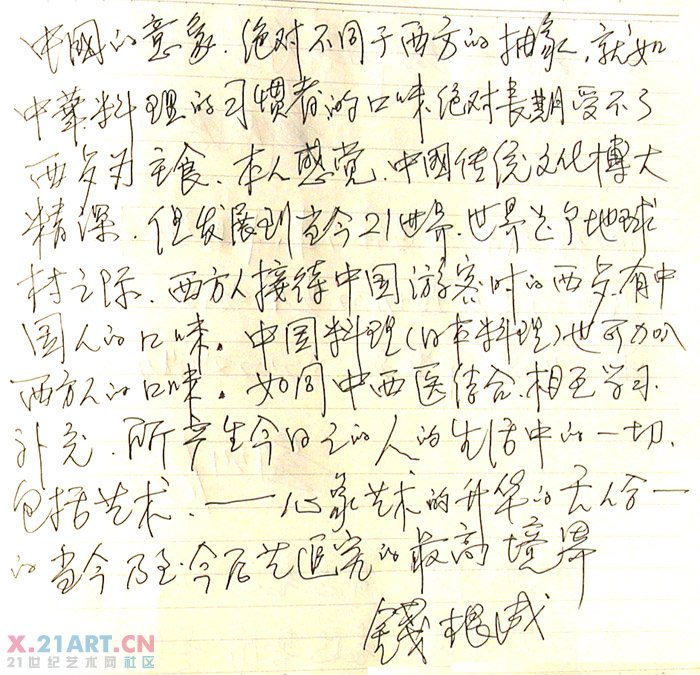 中國的意象.绝对不同于西方的抽象,就如
中華料理的习惯者的口味绝对長期受不了
西点为主食、本人感觉、中國传统文化博大
精深.但发展到当今21世界.世界是个地球
村之际、西方人接待中国游客时的西点.有中
国人的口味。中国料理(日本料理)也可加以
西方人的口味。如同中西医结合.相互学习.
补充.所产生今日之的人的生活中的一切.
包括艺术.——心象艺术的升华的天人合一
的当今乃至今后艺追究的最高境界
錢根成
X.21ART.CN
21世纪艺术网社区